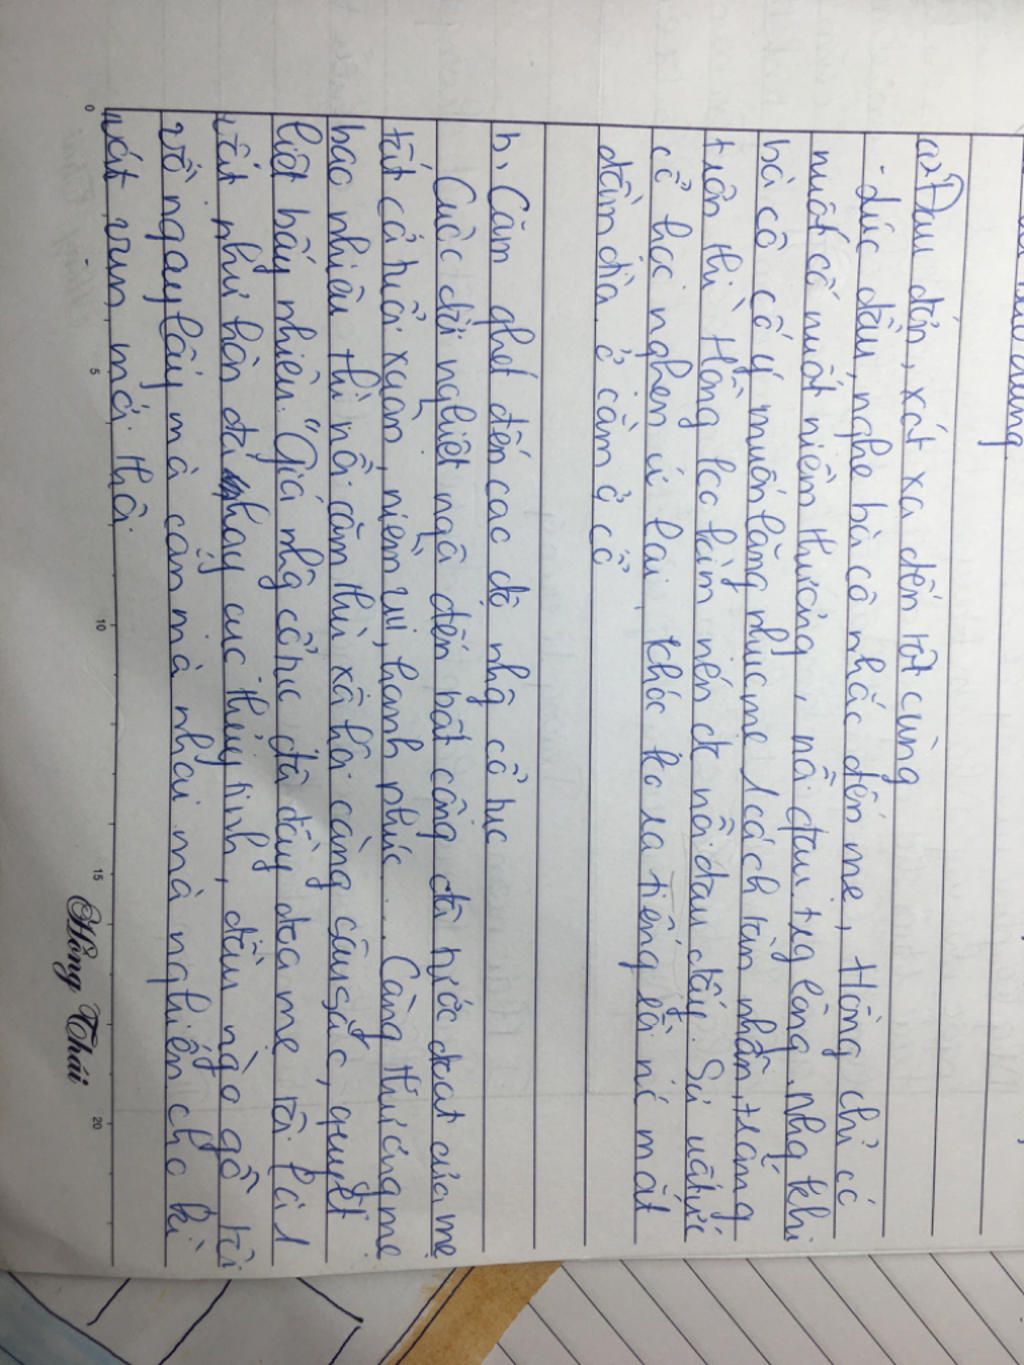 a, Đau đớn, xót xa đến tột cùng
- Lúc đầu, nghe bà cô nhắc đến mẹ, Hồng chỉ cố
nuốt niềm thương, nỗi đau trg lòng, nhg khi
bà cô cố ý muốn lăng nhục mẹ 1 cách tàn nhẫn, trắng
trợn thì Hồng ko kìm nén đc nỗi đau đấy. Sự uất ức
cổ họng nghẹn ứ lại, khóc ko ra tiếng rồi nc mắt
đầm đìa ở cằm ở cổ
b, Căm ghét đến cao độ nhg cổ tục
Cuộc đời nghiệt ngã đến bất công đã tước đoạt của mẹ
tất cả tuổi xuân, niềm vui, hạnh phúc... Càng thương mẹ
bao nhiêu thì nỗi căm thù xã hội càng sâu sắc, quyết
liệt bấy nhiêu. "Giá nhg cổ tục đã đày đọa mẹ tôi là 1
vật như hòn đá hay cục thủy tinh, đầu mẩu gỗ tôi
vồ ngay lấy mà cắn mà nhai mà nghiến cho kì
nát vụn mới thôi
0 5 10 15 20
Hồng Thái